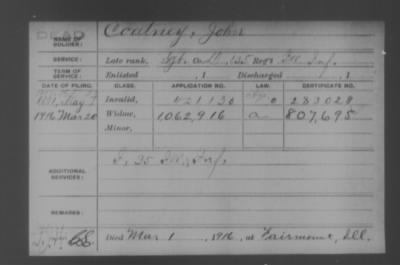 DEAD
NAME OF SOLDIER: Coatney, John
SERVICE: Late rank, Sgt. Co. D, 135 Reg't Ill. Inf.
TERM OF SERVICE: Enlisted , 1 Discharged , 1
DATE OF FILING. CLASS. APPLICATION NO. LAW. CERTIFICATE NO.
May Invalid, 421130 283028
1916 Mar 20 Widow, 1,062,916 a 807,695
Minor,
ADDITIONAL SERVICES: F, 25 Ill. Inf.
REMARKS:
Died Mar 1, 1916, at Fairmount, Ill.